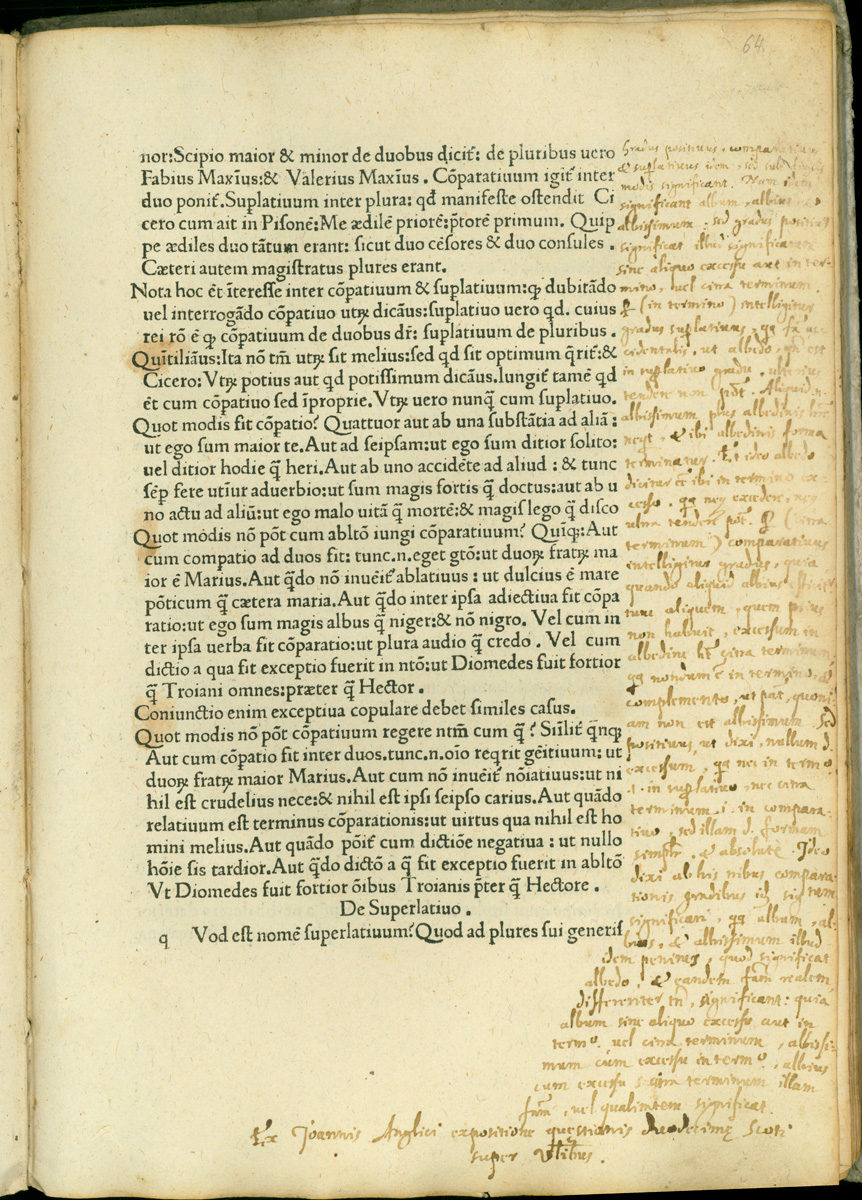 64.
nor:Scipio maior & minor de duobus dicit᷑: de pluribus uero
Fabius Maxīus:& Valerius Maxīus . Cōparatiuum igit᷑ inter
duo ponit᷑.Suplatiuum inter plura: qd̛ manifeste ostendit Ci
cero cum ait in Pisonē:Me ædilē priorē:p̄torē primum. Quip
pe ædiles duo tātum erant: sicut duo cēsores & duo consules .
Cæteri autem magistratus plures erant.
Nota hoc ēt īteresse inter cōpatiuum & suplatiuum:ꝙ dubitādo
uel interrogādo cōpatiuo utꝝ dicāus:suplatiuo uero qd. cuius
rei rō ē ꝙ cōpatiuum de duobus dr̄: suplatiuum de pluribus .
Quītiliāus:Ita nō tm̄ utꝝ sit melius:sed qd sit optimum q̄rit᷑:&
Cicero:Vtꝝ potius aut qd potissimum dicāus.Iungit᷑ tamē qd
ēt cum cōpatiuo sed īproprie.Vtꝝ uero nunq̄ cum suplatiuo.
Quot modis fit cōpatio? Quattuor aut ab una substātia ad aliā :
ut ego sum maior te.Aut ad seipsam:ut ego sum ditior solito:
uel ditior hodie q̄ heri.Aut ab uno accidēte ad aliud : & tunc
sēp fere utīur aduerbio:ut sum magis fortis q̄ doctus:aut ab u
no actu ad aliū:ut ego malo uitā q̄ mortē:& magis lego q̄ disco
Quot modis nō pōt cum abltō iungi cōparatiuum? Quīqꝫ:Aut
cum compatio ad duos fit: tunc.n.eget gtō:ut duoꝝ fratꝝ ma
ior ē Marius.Aut q̄do nō inuēit᷑ ablatiuus : ut dulcius ē mare
pōticum q̄ cætera maria.Aut q̄do inter ipsa adiectiua fit cōpa
ratio:ut ego sum magis albus q̄ niger:& nō nigro. Vel cum in
ter ipsa uerba fit cōparatio:ut plura audio q̄ credo . Vel cum
dictio a qua fit exceptio fuerit in ntō:ut Diomedes fuit fortior
q̄ Troiani omnes:præter q̄ Hector .
Coniunctio enim exceptiua copulare debet similes casus.
Quot modis nō pōt cōpatiuum regere ntm̄ cum q̄ ? Siīlit᷑ q̄nqꝫ
Aut cum cōpatio fit inter duos.tunc.n.oīo reqrit gēitiuum: ut
duoꝝ fratꝝ maior Marius.Aut cum nō inuēit᷑ nōiatiuus:ut ni
hil est crudelius nece:& nihil est ipsi seipso carius.Aut quādo
relatiuum est terminus cōparationis:ut uirtus qua nihil est ho
mini melius.Aut quādo pōit᷑ cum dictiōe negatiua : ut nullo
hōie sis tardior.Aut q̄do dictō a q̄ fit exceptio fuerit in abltō
Vt Diomedes fuit fortior ōibus Troianis p̄ter q̄ Hectore .
De Superlatiuo .
q Vod est nomē superlatiuum?Quod ad plures sui generis
Gradus positiuus, comparatiuus
& suplatiuus idem, sed sub
modis significant. Nam idem
significant album, albius
albissimum. sed gradus positiu
significat illud significatum
sine aliquo excessu aut in ter-
mino, uel citra terminum.
(in termino) intelligitur
gradus suplatiuus, fm̄ ac
cidentalis, ut albedo, est
in suplatiuo gradu, ulterius
tendere non pōt. Aliquid
albissimum plus albedinis
& ibi albedinis forma
Et ideo albedo
dicitur ēē ibi in termino ex-
cessu. excedere, neqꝫ
ultra tendere pōt. (citra
terminum) comparatiuus
intelligitur gradus, quia
quando aliquid albius
tunc aliquem, quem prius
non habuit, excessum in
albedine citra terminum
nondum ē in termino, &
complemento, ut pat, quoni
am non est albissimum. Sed
positiuus, ut dixi, nullum d.
excessum, nec in termo
.i. in suplatiuo, nec citra
terminum .i. in compara-
tiuo, sed illam d. formam
simplr̄, & absolute. Ideo
dixi ab his tribus compara-
tionis gradibus id,
significari, album, al-
bius, & albissimum illud
idem penitus, quod significat
albedo, & eandem realem
differenter tn̄ significant: quia
album sine aliquo excessu aut in
termo. uel citra terminum, albissi-
mum cum excessu in termo, albius
cum excessu citra terminum illam
uel qualitatem significat.
Ex Joannis Anglici expositione questionis duodecimę Scoti
super